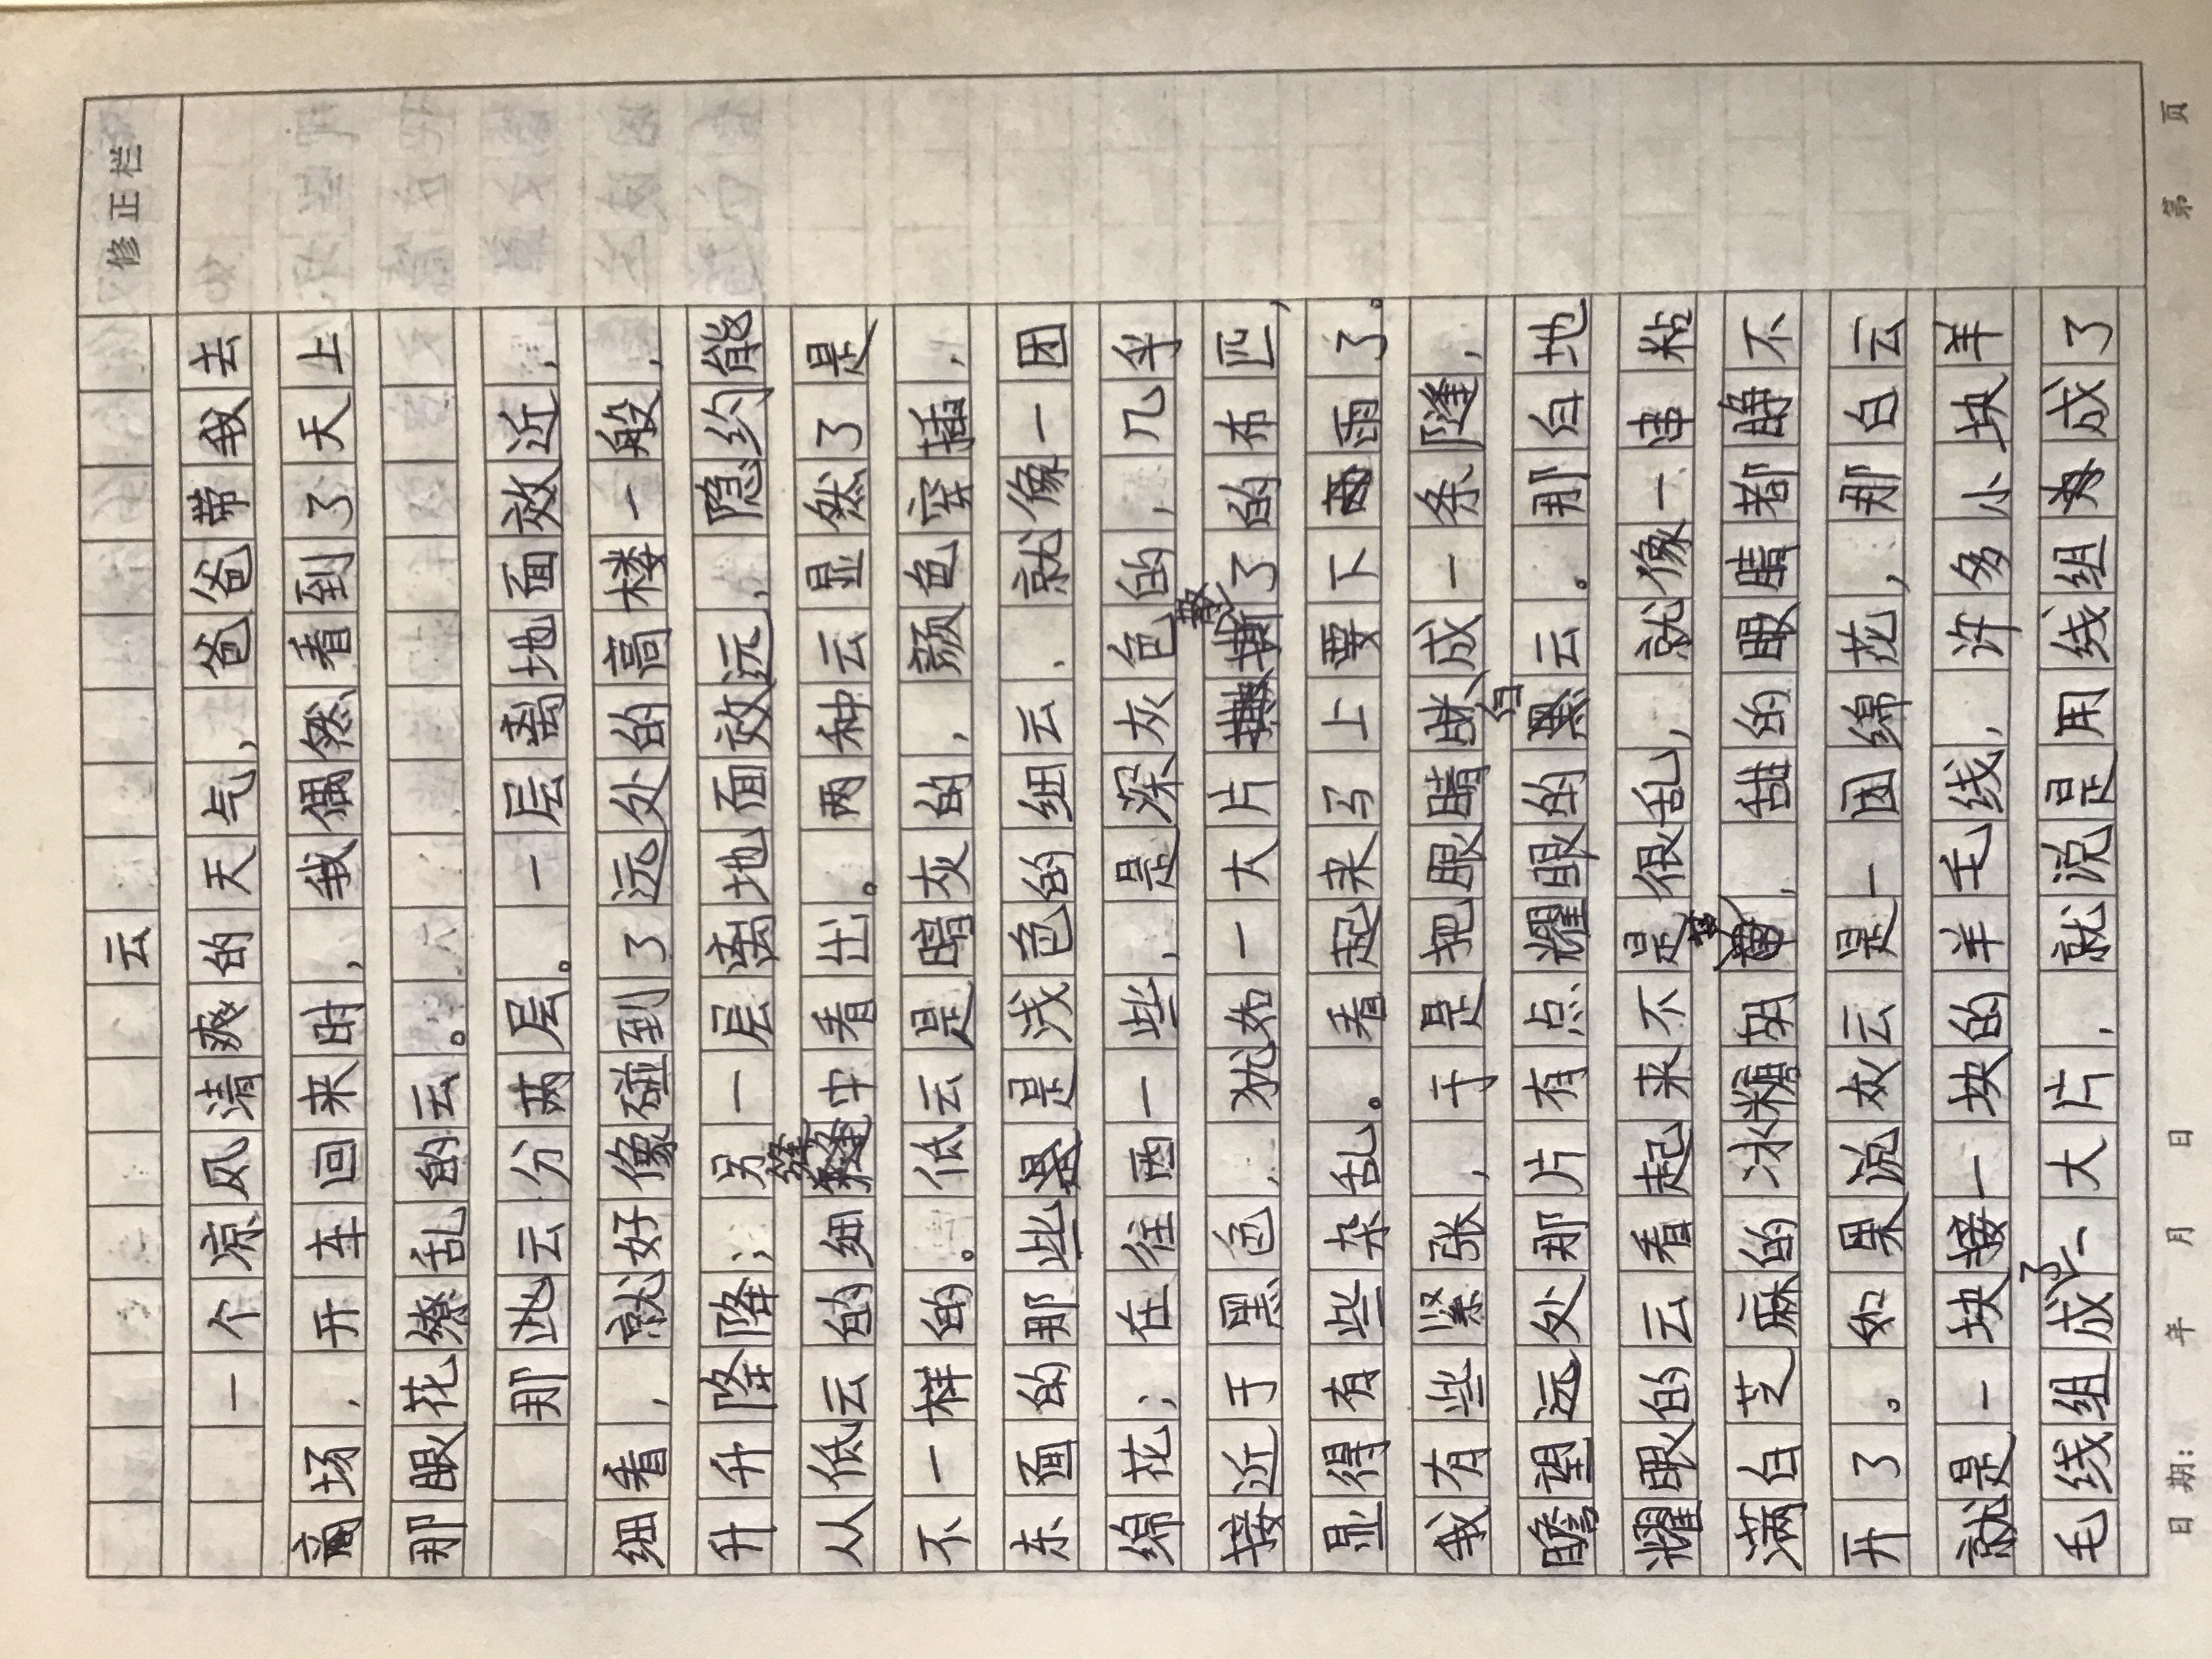 修正栏
云
一个凉风清爽的天气，爸爸带我去
商场，开车回来时，我偶然看到了天上
那眼花缭乱的云。
那些云分两层。一层离地面效近，
细看，就好像碰到了远处的高楼一般，
升升降降；另一层离地面效远，隐约能
从低云的细缝中看出。两种云显然了是
不一样的。低云是暗灰的，颜色穿插，
东面的那些是浅色的细云，就像一团
绵花；在往西一些，是深灰色的，几乎
接近于黑色，犹如一大片撕散了的布匹，
显得有些杂乱。看起来马上要下雨了。
我有些紧张，于是把眼睛眯成一条缝，
瞻望远处那片有点耀眼的白云。那白地
耀眼的云看起来不是很乱，就像一串粘
满白芝麻的冰糖葫芦，甜的眼睛都睁不
开了。如果说灰云是一团绵花，那白云
就是一块接一块的羊毛线，许多小块羊
毛线组成了一大片，就说是用线组成了
日期： 年 月 日 第 页